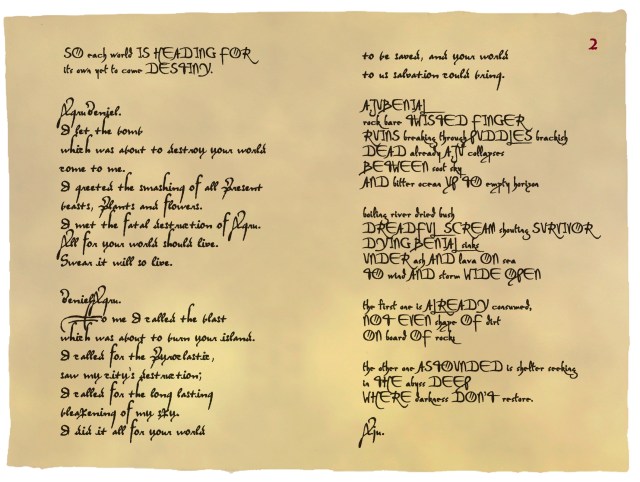 SO each world IS HEADING FOR
its own yet to come DESTINY.
I let the bomb
which was about to destroy your world
come to me.
I greeted the smashing of all present
beasts, plants and flowers.
I met the fatal destruction of
All for your world should live.
Swear it will so live.
To me I called the blast
which was about to burn your island.
I called for the pyroclastic,
saw my city's destruction;
I called for the long lasting
bleakening of my sky.
I did it all for your world
2
to be saved, and your world
to us salvation could bring.
rock bare TWISTED FINGER
RUINS breaking through PUDDLES brackish
DEAD already AJU collapses
BETWEEN soot sky
AND bitter ocean UP TO empty horizon
boiling river dried bush
DREADFUL SCREAM shouting SURVIVOR
DYING BENIAL sinks
UNDER ash AND lava ON sea
TO wind AND storm WIDE OPEN
the first one is ALREADY consumed,
NOT EVEN shape OF dirt
ON board OF rock
the other one ASTOUNDED is shelter seeking
in THE abyss DEEP
WHERE darkness DON'T restore.